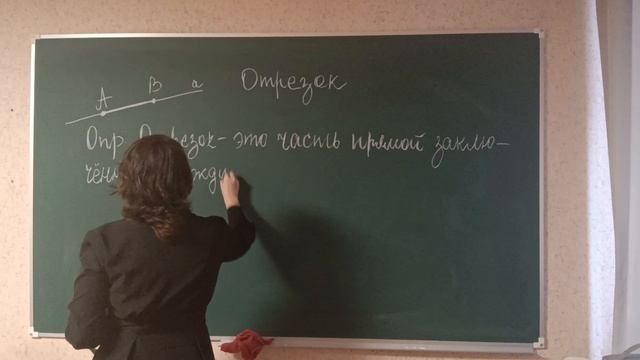 A B a
Отрезок
Опр. Отрезок - это часть прямой заклю-